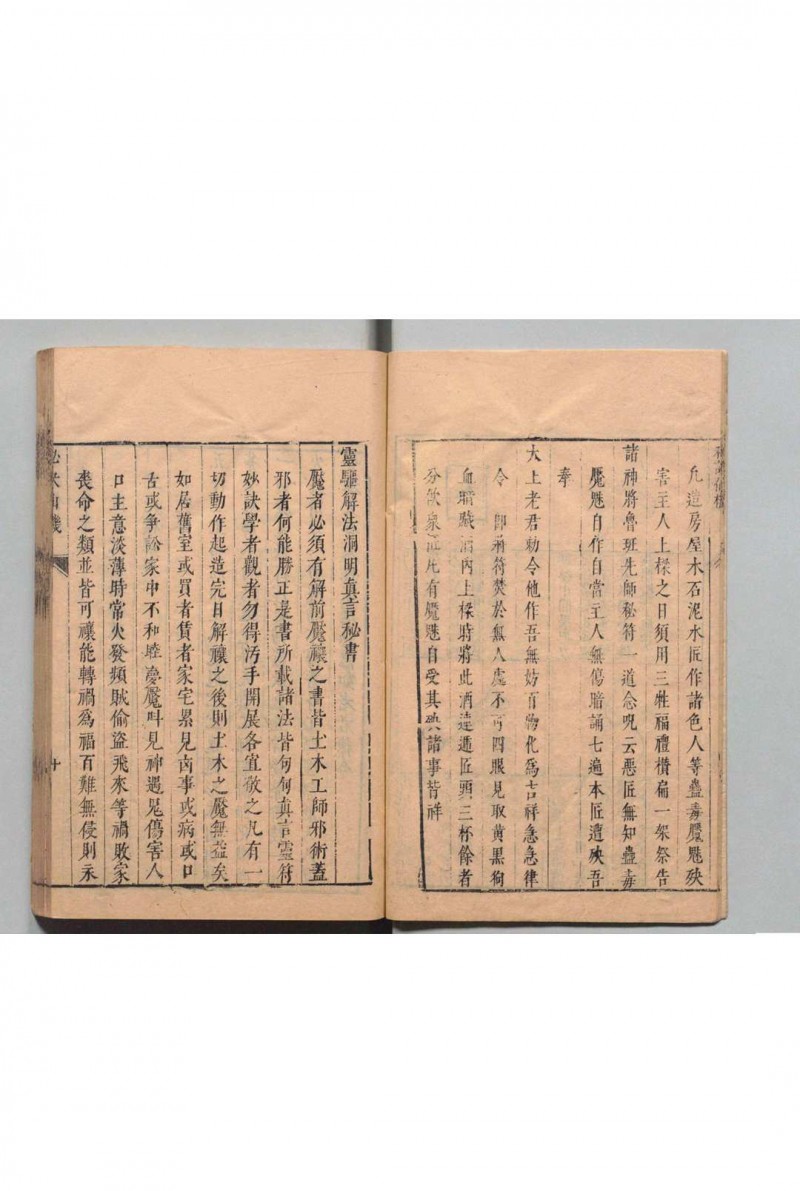 凡造房屋木石泥水匠作諸色人等蠱毒魘魅殃
害主人上樑之日須用三牲福禮欑扁一架祭告
諸神將魯班先師秘符一道念呪云惡匠無知蠱毒
魘魅自作自當主人無傷暗誦七遍本匠遭殃吾
奉
太上老君勅令他作吾無妨百物化爲吉祥急急律
令 即將符焚於無人處不可四眼見取黃黑狗
血暗藏酒內上樑時將此酒連遞匠頭三杯餘者
分飲衆匠凡有魘魅自受其殃諸事皆祥
靈驅解法洞明真言秘書
魘者必須有解前魘禳之書皆土木工師邪術蓋
邪者何能勝正是書所載諸法皆句句真言靈符
妙訣學者觀者勿得汚手開展各宜敬之凡有一
切動作起造完日解禳之後則土木之魘無益矣
如居舊室或買者賃者家宅累見凶事或病或口
舌或爭訟家中不和睦慶魘叫見神遇鬼傷害人
口主意淡薄時常火發頻賊偷盜飛來等禍敗家
喪命之類並皆可禳能轉禍爲福百難無侵則永
十